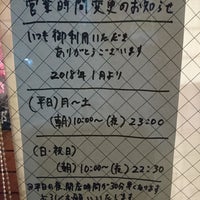 営業時間変更のお知らせ
いつも御利用いただき
ありがとうございます
2018年1月より
(平日)月〜土
(朝)10:00〜(夜)23:00
(日・祝日)
(朝)10:00〜(夜)22:30
よろしくお願いいたします